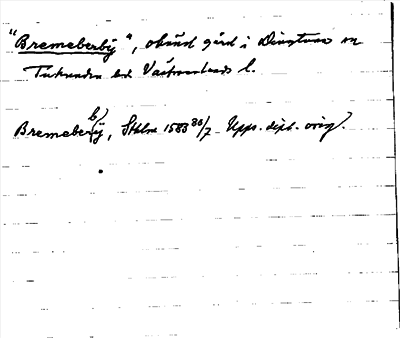 "Bremeberby", okänd gård i Dingtuna sn
Tuhundra hd Västmanlands l.
b)
Bremeberÿ, Sthlm 1588 30/7 Upps. dipl. orig.